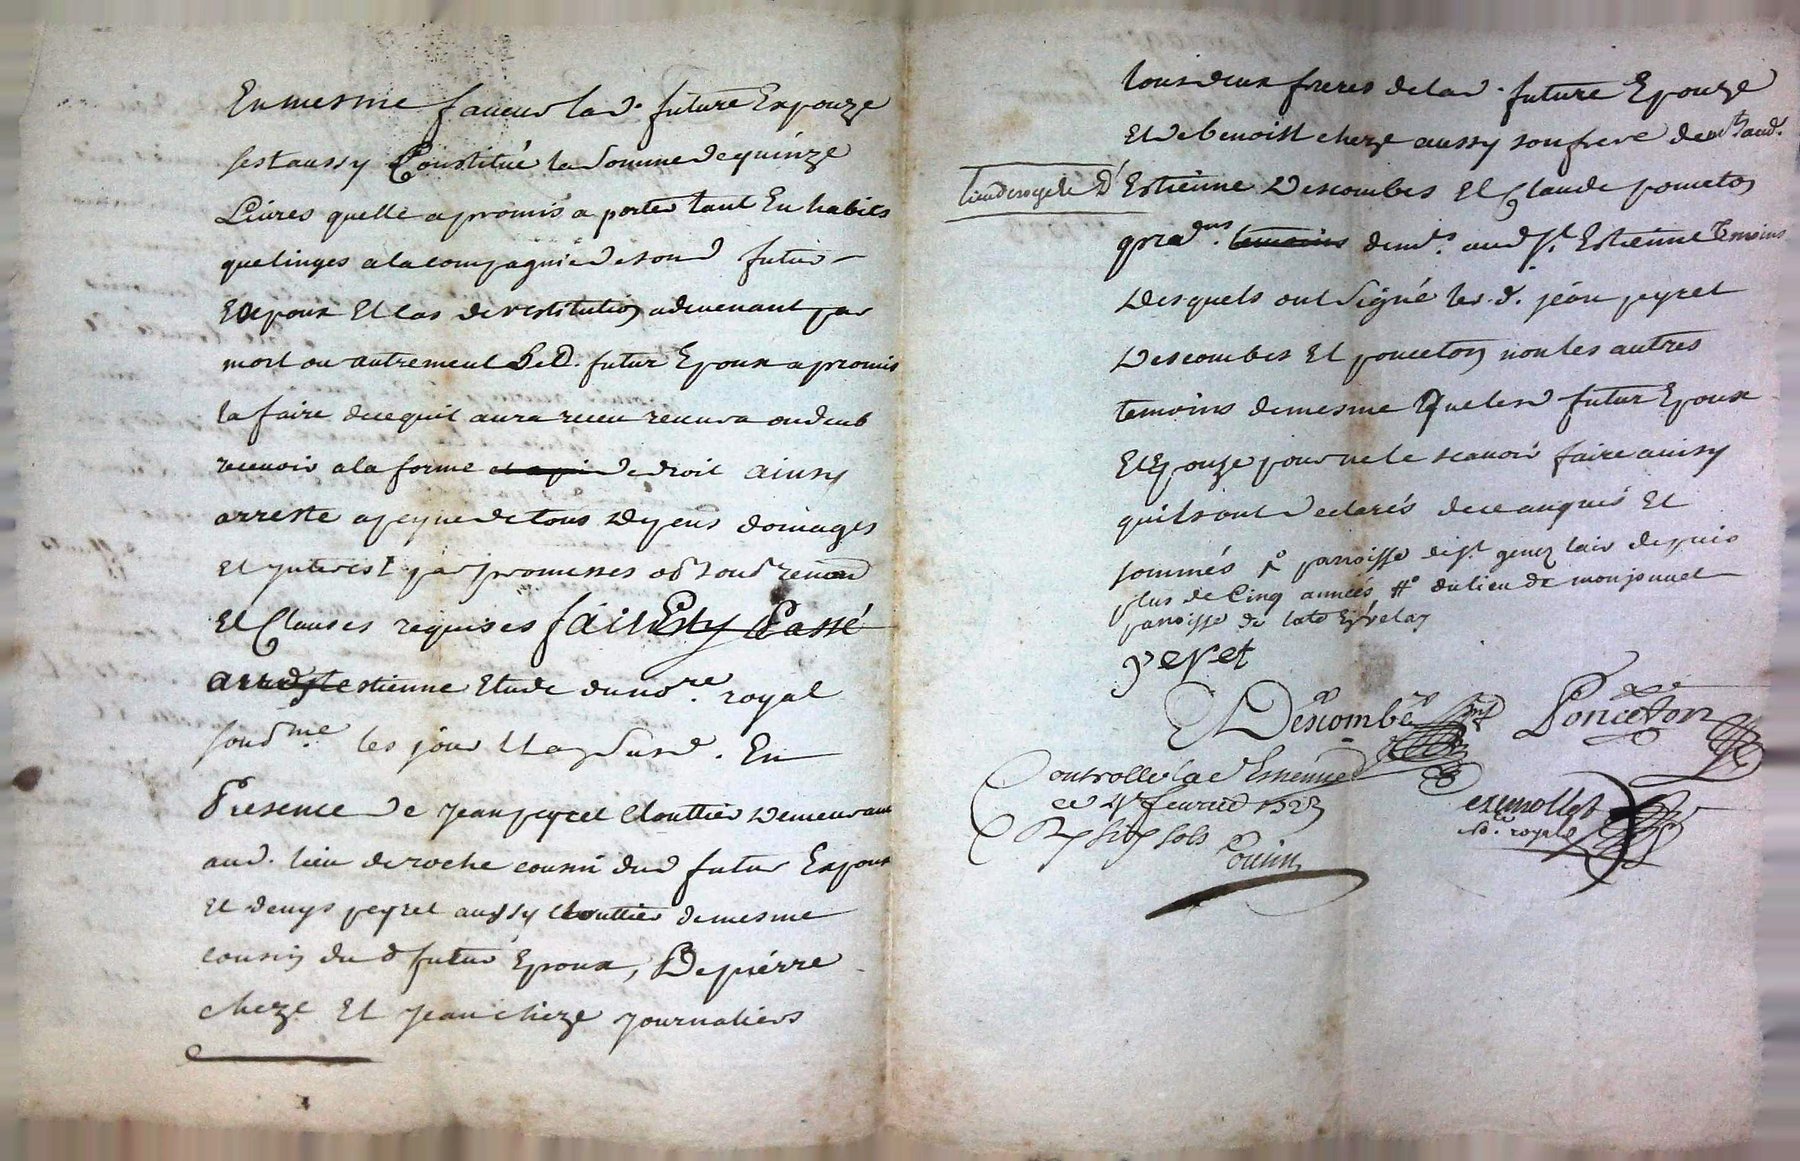 En mesme faveur lad. future Expouze
sest aussy Constitué la somme de quinze
Livres quelle a promis a porter tant En habits
que linges a la compagnie de son d futur
Expoux Et cas de restitution advenant par
mort ou autrement Le D. futur Epoux a promis
la faire de ce quil aura receu recevra ou deub
recevoir a la forme de droit ainsy
arresté a peyne de tous depens domages
Et ynterest par promesses obs soud renon
Et Clauses requises fait Et Passé
estienne Etude du no.re royal
soud.ne les jour Et an Susd. En
Presence de Jean peyret Clouttier Demeurant
aud. lieu de roche cousin dud futur Expoux
Et denys peyret aussy Clouttier de mesme
cousin du d futur Epoux, De pierre
cheze Et Jean cheze Journaliers
tous deux freres de lad. future Epouze
Et de benoist cheze aussy son frere dem.t aud.
Estienne Descombes Et Claude ponceton
temoins dem.ts aud St. Estienne Temoins
Desquels ont Signé les d. jean peyret
Descombes Et ponceton non les autres
temoins de mesme Que lesd futur Epoux
Et Epouze pour ne le scavoir faire ainsy
quils ont Declarés de ce enquis Et
sommés # parroisse de st genez lair depuis
plus de Cinq années # du lieu de monjonnet
parroisse de
peyret
Descombe Ponceton
Controllé a St Estienne
ce 4e fevrier
R Six sols
N. royal